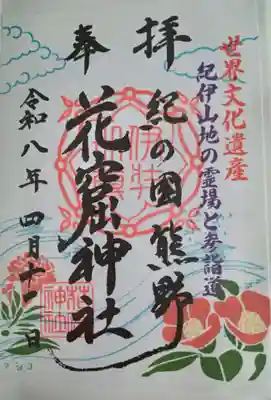 世界文化遺産
紀伊山地の霊場と参詣道
奉拝
紀の国熊野
花窟神社
令和八年 四月十一日